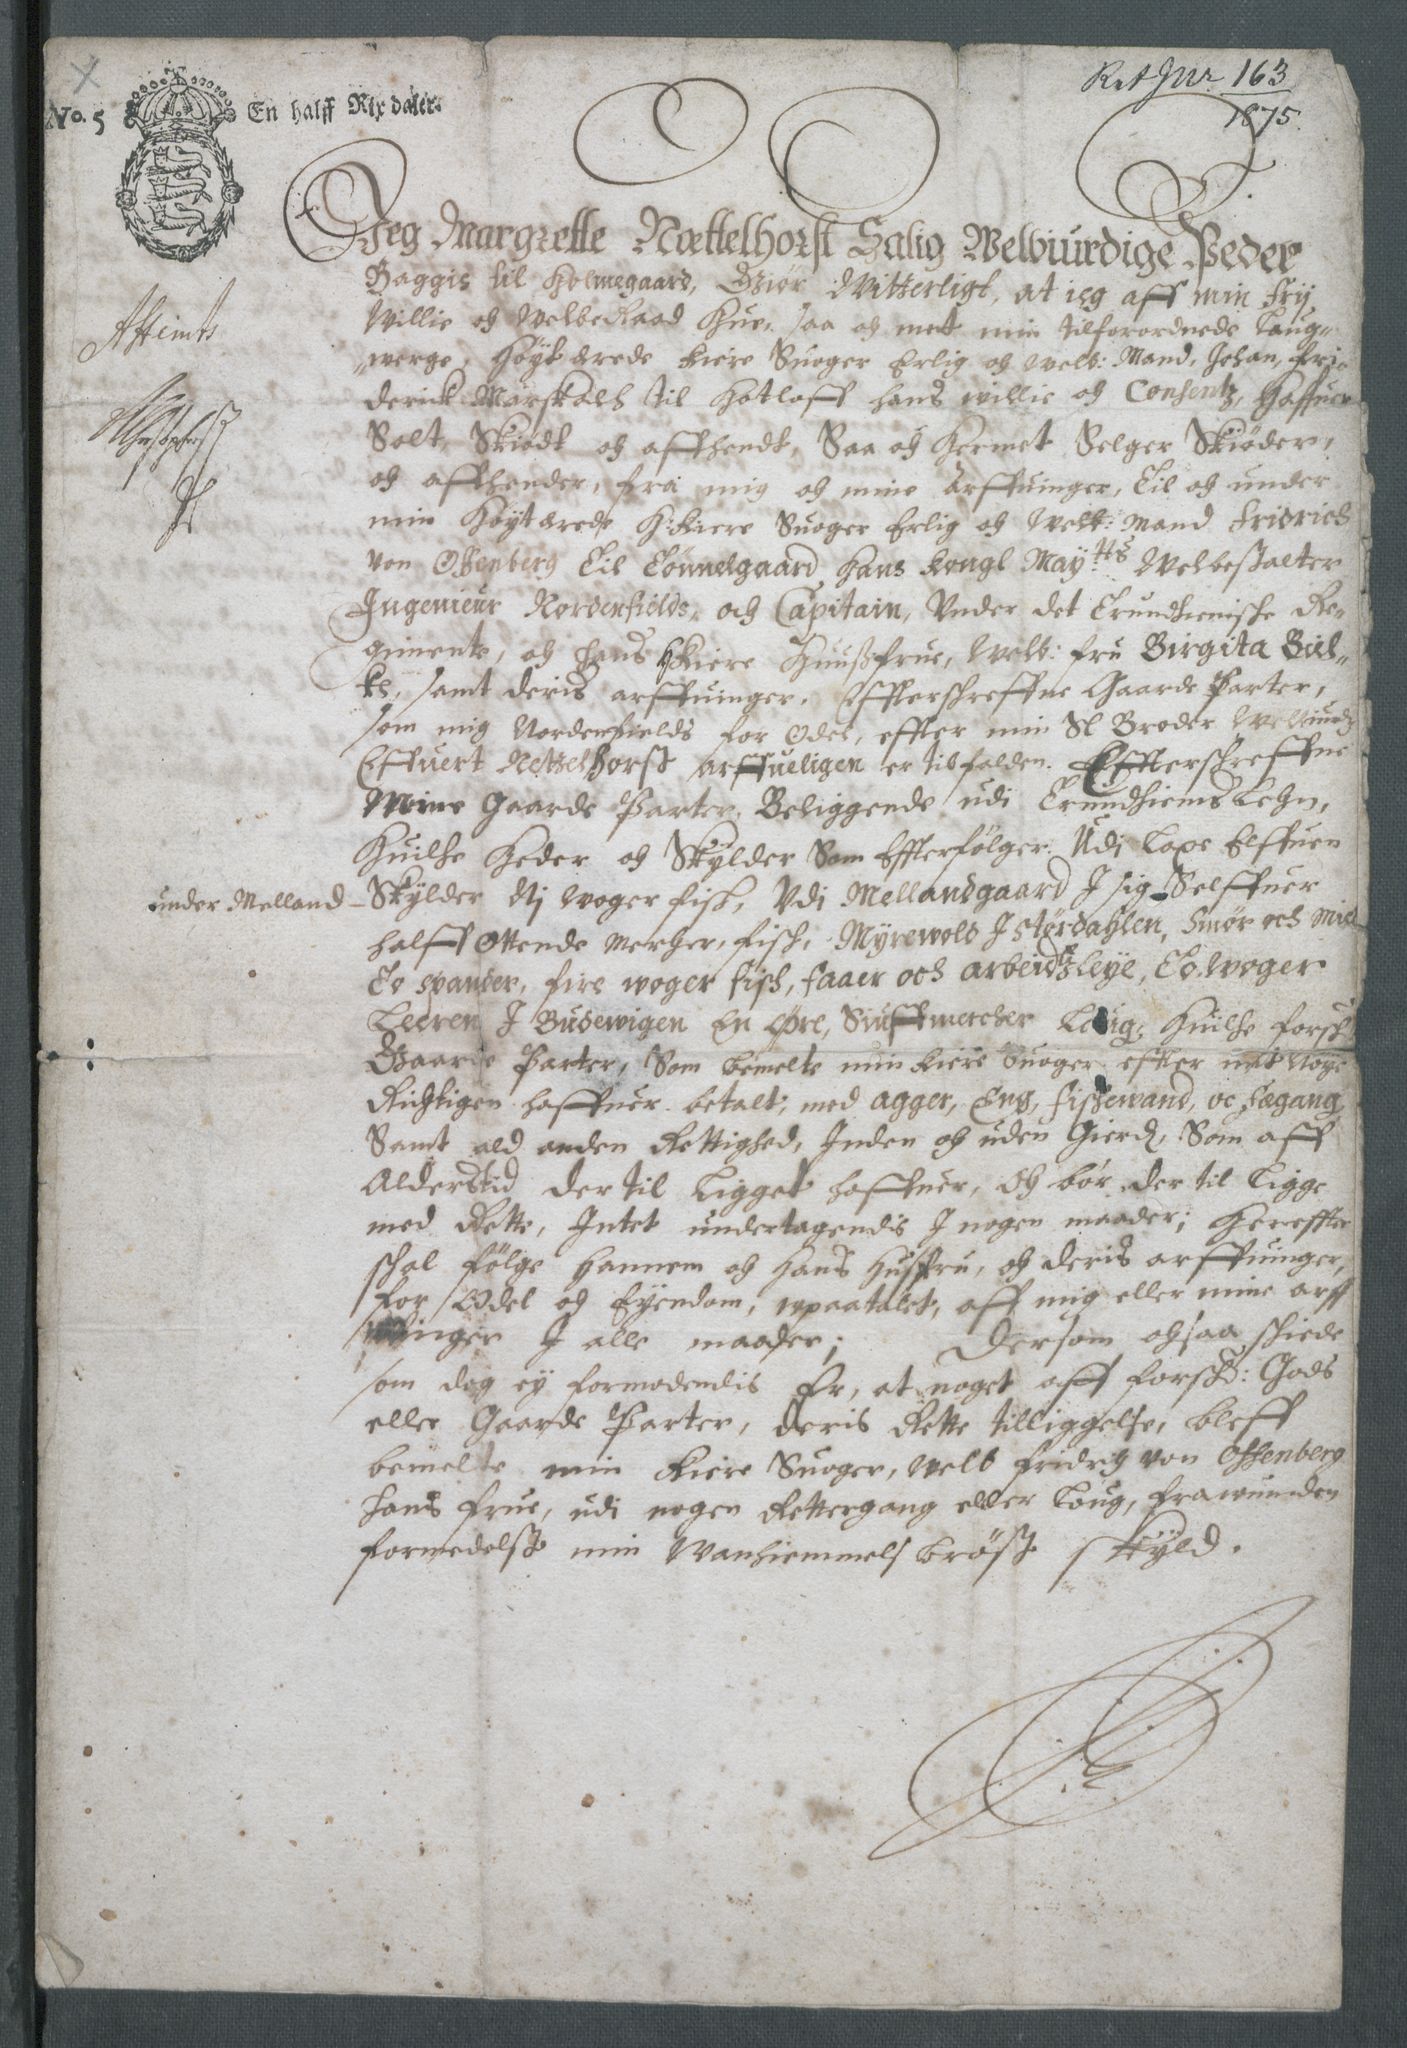 No. 5 En halff Rix daler.
163
1875.
Jeg Margrette Nættelhorst Salig Welbiurdige Peder
Baggis til Holmegaard, Giör Witterligt, at ieg aff min Frÿ
Willie och Velberaad Hue, saa och met min tilforordnede Laug„
„werge, Höyt ærede kiere Suoger Erlig och Welb: Mand, Johan, Fri„
derick Marskalk til Hatloff hans willie och Consentz, Haffuer
Solt, Skiödt och affhendt, Saa och Hermet Selger Skiöder,
och affhender, fra mig och mine Arffuinger, Til och under
min Höyt ærede H: Kiere Suoger Erlig och Welb: Mand Fridrich
von Offenberg Til Tönnelgaard, Hans kongl Maÿ:tts Welbestalter
Ingenieur Nordenfields, och Capitain, Vnder det Trundhiemske Re„
gimente, och Hans H Kiere Huusfrue, Welb: Fru Birgita Biel„
ke, samt deris arffuinger, Effterschreffne Gaarde Parter,
som mig Nordenfields for Odel, effter min Sl Broder Welbiurdig
Effuert Nettelhorst arffueligen er tilfalden. Effterschreffne
Mine Gaarde Parter, Beliggende udi Trundhiems Lehn,
Huilche Heder och Skÿlder Som Effterfölger: Udi Laxe Elffuen
under Melland Skÿlder woger fisk, Vdi Mellandgaard J sig Selffuer
halff Ottende Mercher, fisk, Mÿrewold J Størdahlen, Smör och Miel
To spander, fire woger fisk, faaer och arbeidtzleÿe, To woger
Leeren J Budewigen En øre, Siuff mercher Leig; Huilche forsk:
Gaarde Parter, Som bemelte min Kiere Suoger effter mit Nöye
Richtigen haffuer betalt, med agger, Eng, fiskewand, oc fægang,
Samt ald anden Rettighed, Inden och uden Gierdz, Som aff
Alderstid der til Ligget haffuer, och bör der til Ligge
med Rette, Intet undertagendis J nogen maader; Hereffter
skal fölge Hannem och Hans Husfru, och deris arffuinger,
for Odel och Eyendom, wpaatalet, aff mig eller mine arff
uinger J alle maader; Dersom ochsaa skiede
som dog ey formodendis Er, at noget aff forskr: Gods
eller Gaarde Parter, deris Rette tilliggelse, bleff
bemelte min Kiere Suoger, Welb Fridrich von Offenberg
Hans Frue, udi nogen Rettergang eller Laug, frawunden
formedelst min Wanhiemmels bröst skÿld.